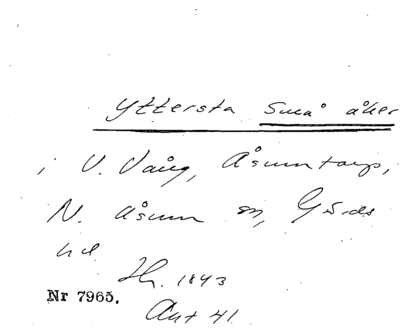 Yttersta Små åker
i V. Vång, Åsumtorp,
N. Åsum sn, Gärds
hd
Ih. 1843
Nr 7965.
Akt 41